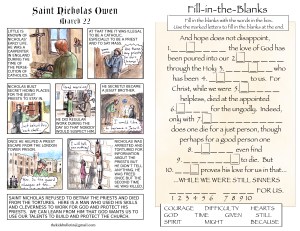 Saint Nicholas Owen
March 22
LITTLE IS
KNOWN OF
NICHOLAS'
EARLY LIFE.
HE WAS A
CARPENTER
IN ENGLAND
DURING THE
TIME OF THE
PERSE-
CUTION OF
CATHOLICS.
AT THAT TIME IT WAS ILLEGAL
TO BE A CATHOLIC,
ESPECIALLY TO BE A PRIEST
AND TO SAY MASS.
NICHOLAS BUILT
SECRET HIDING PLACES
FOR THE JESUIT
PRIESTS TO STAY IN
HE DID REGULAR
WORK DURING THE
DAY SO THAT NOBODY
WOULD SUSPECT HIM.
HE SECRETLY BECAME
A JESUIT BROTHER.
ONCE HE HELPED A PRIEST
ESCAPE FROM THE LONDON
TOWER PRISON.
NICHOLAS WAS
ARRESTED AND
TORTURED FOR
INFORMATION
ABOUT THE
PRIESTS BUT
HE DIDN'T TELL.
HE WAS FREED
ONCE BUT THE
SECOND TIME
HE WAS KILLED.
SAINT NICHOLAS REFUSED TO BETRAY THE PRIESTS AND DIED
FROM THE TORTURES. HERE IS A MAN WHO USED HIS SKILLS
AND CLEVERNESS TO WORK FOR GOD AND PROTECT HIS
PRIESTS. WE CAN LEARN FROM HIM THAT GOD WANTS US TO
USE OUR TALENTS TO BUILD AND PROTECT THE CHURCH.
Fill-in-the-Blanks
Fill in the blanks with the words in the box.
Use the marked letters to fill in the blanks at the end.
And hope does not disappoint,
the love of God has
been poured into our 2
through the Holy 3 who
has been 4 to us. For
Christ, while we were 5
helpless, died at the appointed
6 for the ungodly. Indeed,
only with 7
does one die for a just person, though
perhaps for a good person one
8 even find
9 to die. But
10 proves his love for us in that
...WHILE WE WERE STILL SINNERS
FOR US.
1 2 3 4 5 6 7 8 9 10
COURAGE DIFFICULTY HEARTS
GOD TIME GIVEN STILL
SPIRIT MIGHT BECAUSE